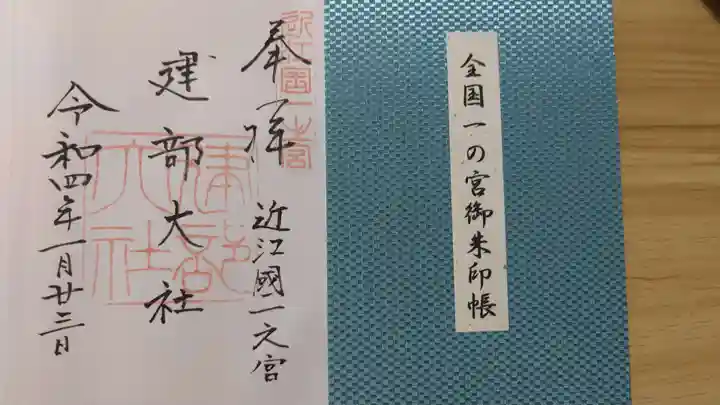 全国一の宮御朱印帳
近江国一宮
奉拝 近江國一之宮
建部大社
建部大社
令和四年一月廿三日